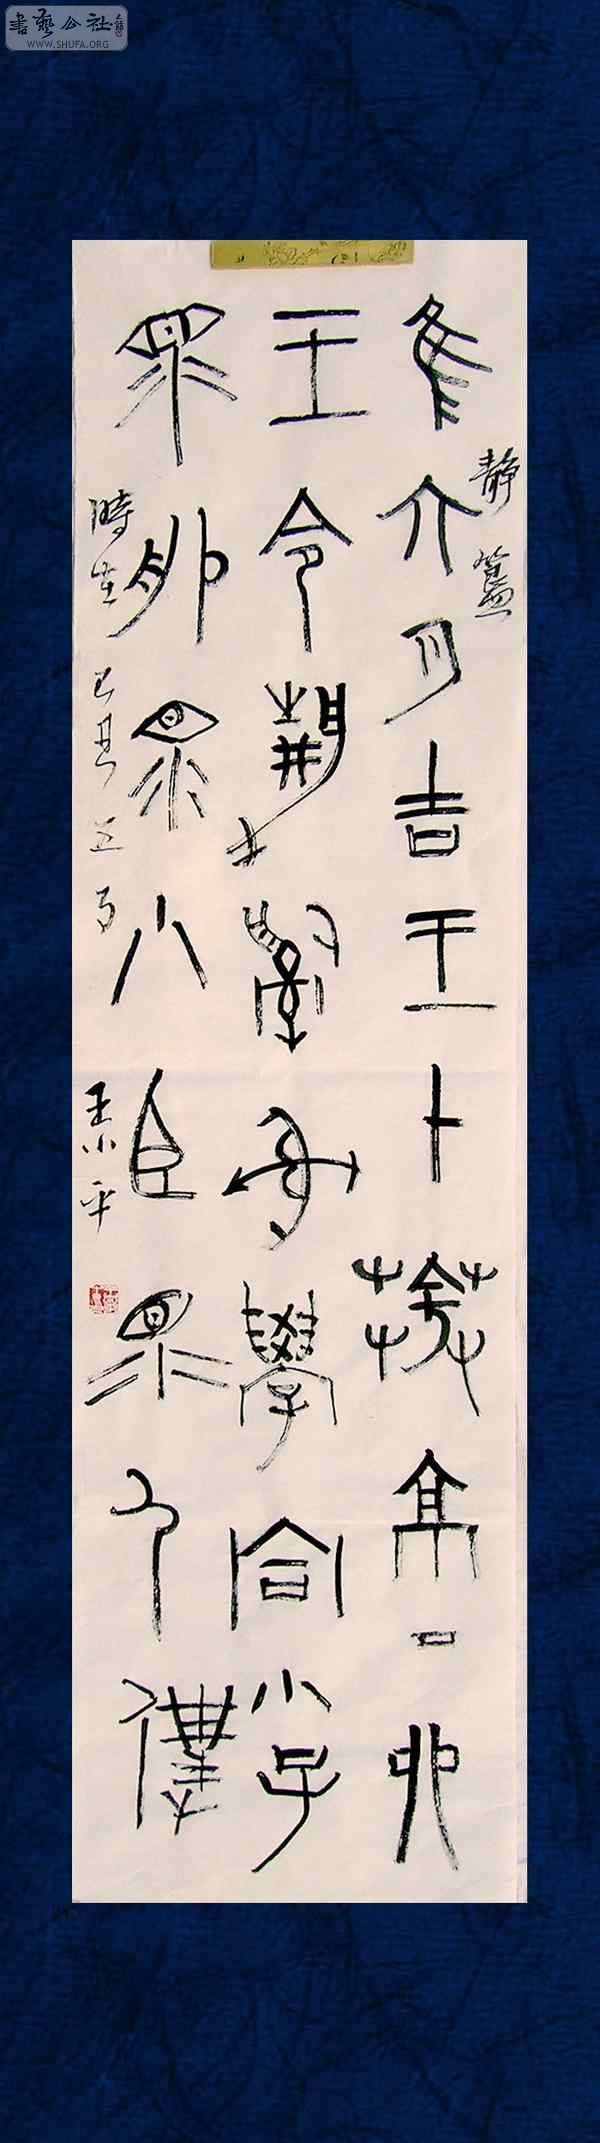 靜簋
隹六月吉王才京丁卯
王令靜𤔲射學宮小子
眔服眔小臣眔尸僕
時在己丑五月
王小平
書藝公社
WWW.SHUFA.ORG